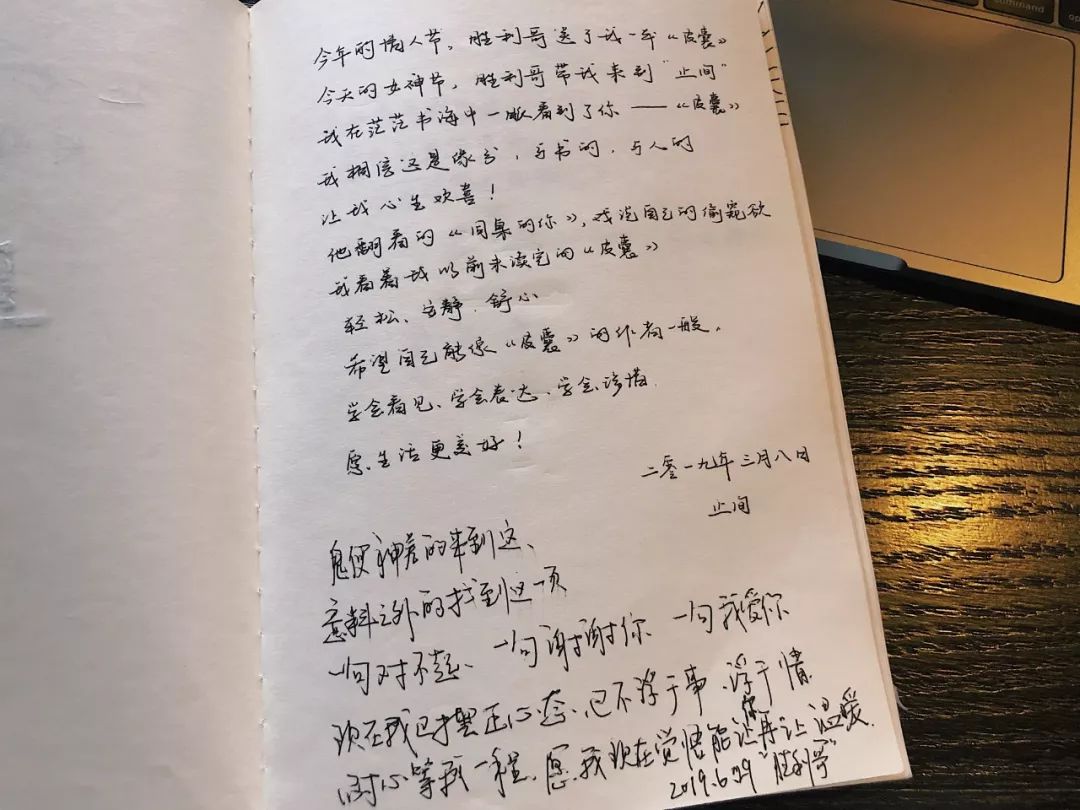 今年的情人节，胜利哥送了我一本《皮囊》
今天的女神节，胜利哥带我来到"止间"
我在茫茫书海中一眼看到了你——《皮囊》
我相信这是缘分，与书的，与人的
让我心生欢喜！
他翻看的《同桌的你》，戏说自己的偷窥欲
我看着我以前未读完的《皮囊》
轻松、安静、舒心
希望自己能像《皮囊》的作者一般，
学会看见、学会表达、学会珍惜
愿生活更美好！
二零一九年三月八日
止间
鬼使神差的来到这、
意料之外的找到这一页
一句对不起、一句谢谢你 一句我爱你
现在我已摆正心态、已不浮于事、浮于情
耐心等我一程、愿我现在觉悟能让你再让温暖.
2019.6.29 "胜利哥"
command